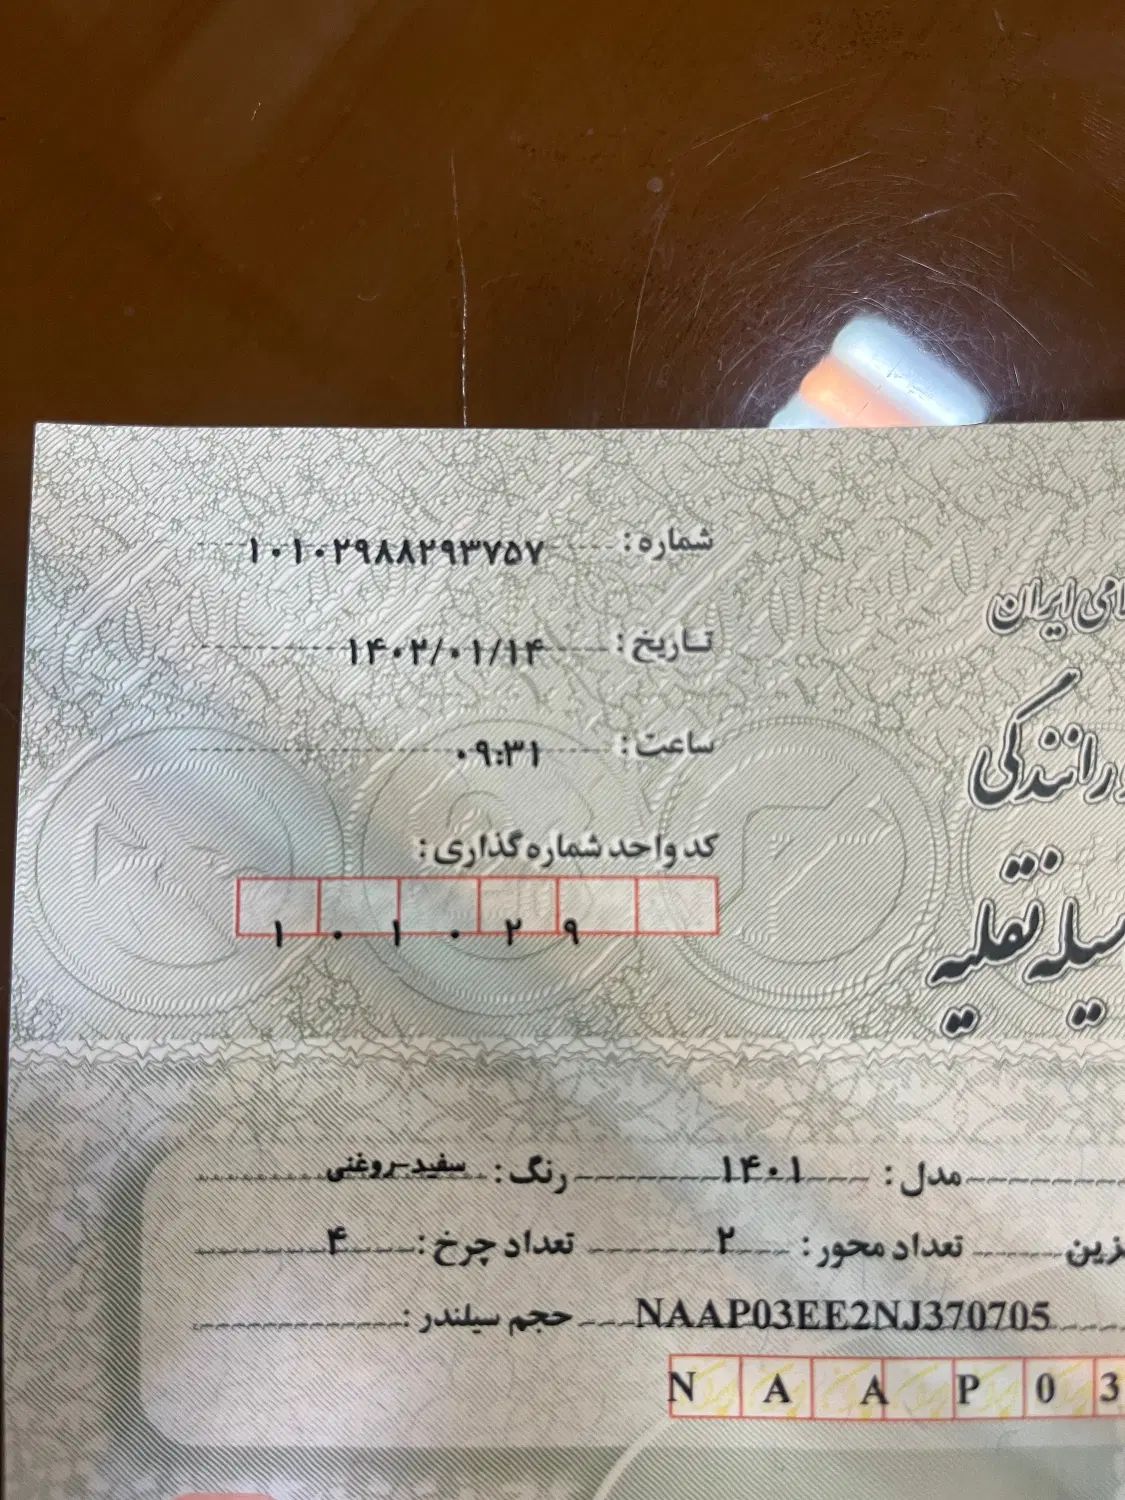 شماره: ۱۰۱۰۲۹۸۸۲۹۳۷۵۷
ایران
تاریخ: ۱۴۰۲/۰۱/۱۴
رانندگی
ساعت: ۰۹:۳۱
کد واحد شماره گذاری:
۱ ۰ ۱ ۰ ۲ ۹
نقلیه
مدل: ۱۴۰۱ رنگ: سفید-روغنی
تعداد محور: ۲ تعداد چرخ: ۴
NAAP03EE2NJ370705 حجم سیلندر:
N A A P 0 3